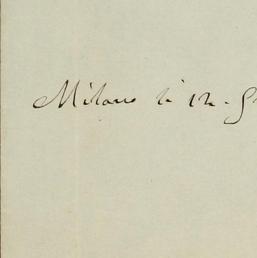 Milano li 12.